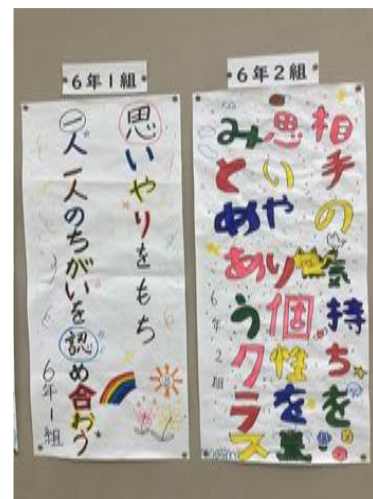 6年1組
思いやりをもち
一人一人のちがいを認め合おう
6年1組
6年2組
相手の気持ちを
思いやり個性を
みとめありうクラス
6年2組